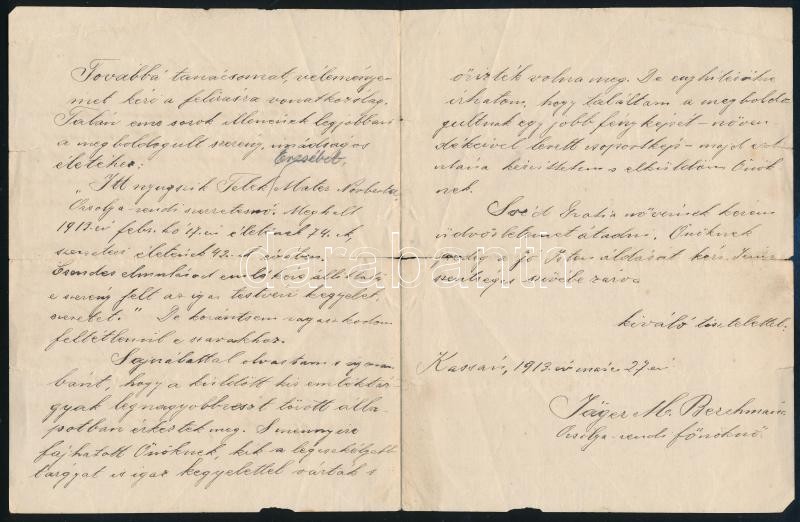 Továbbá tanácsomat, véleménye-
met kéri a felirásra vonatkozólag.
Talán eme sorok illenének legjobban
a megboldogult szerény, imádságos
életéhez:
Erzsébet
„Itt nyugszik Telek Mater Norberta
Orsolya-rendi szerzetesnő. Meghalt
1913. évi febr. hó 17-én életének 74.-ik,
szerzetesi életének 42.-ik évében.
Csendes elmulásod emlékére állította
e szerény jelt az igaz testvéri kegyelet,
szeretet." De korántsem ragaszkodom
feltétlenül e szavakhoz.
Sajnálattal olvastam soraiban
bánt, hogy a küldött kis emléktár-
gyak legnagyobbrészt törött álla-
potban érkeztek meg. S mennyire
fájhatott Önöknek, kik a legcsekélyebb
tárgyat is igaz kegyelettel várták s
őrizték volna meg. De enyhítésükre
írhatom, hogy találtam a megboldo-
gultnak egy jobb fényképét – növen-
dékeivel tett csoportkép – majd
készíttetem s elküldöm Önök-
nek.
Svéd Gratia nővérnek kérem
üdvözletemet átadni. Önöknek
pedig a jó Isten áldását kéri, Jézus
szentséges szívébe zárva
kiváló tisztelettel:
Kassán, 1913. évi márc. 27-én
Jäger M. Berchmana
Orsolya-rendi főnöknő.
darabanth